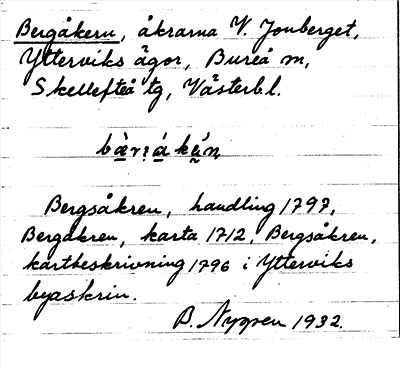 Bergåkern, åkrarna V. Jonberget,
Ytterviks ägor, Bureå sn,
Skellefteå tg, Västerb.l.
Bergsåkren, handling 1797,
Bergåkren, karta 1712, Bergsåkren,
kartbeskrivning 1796 i Ytterviks
byaskrin.
B. Nygren 1932.